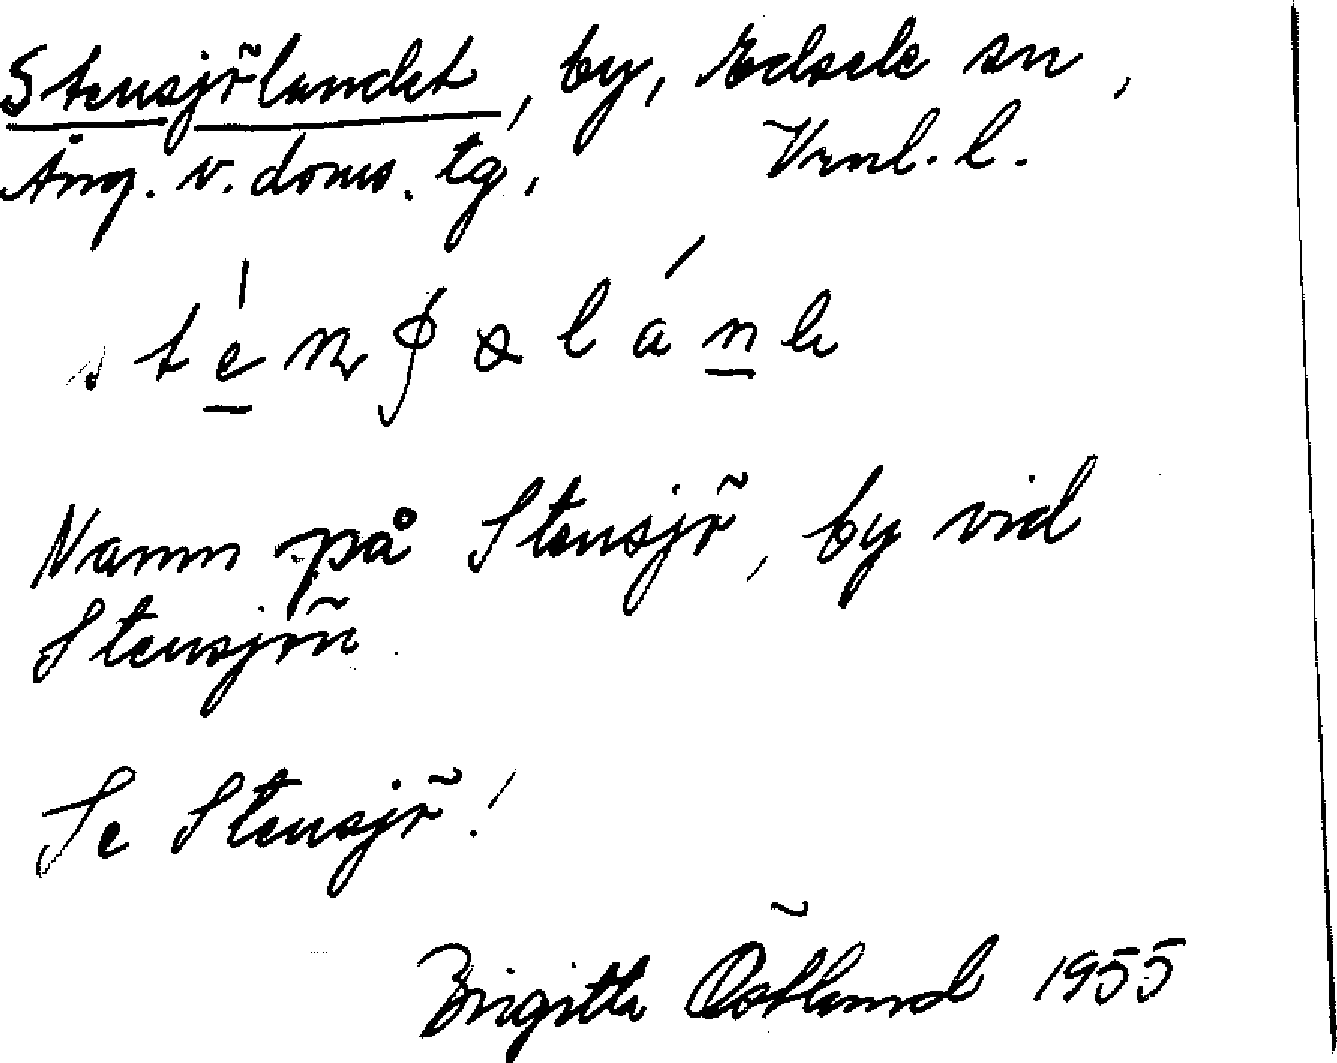 Stensjölandet, by, Edsele sn,
Ång. v. doms. tg, Vrnl. l.
Namn på Stensjö, by vid
Stensjön
Se Stensjö!
Birgitta Östlund 1955